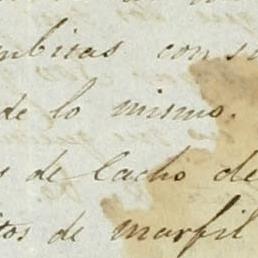 con su
de lo mismo.
de Cacho de
tos de marfil